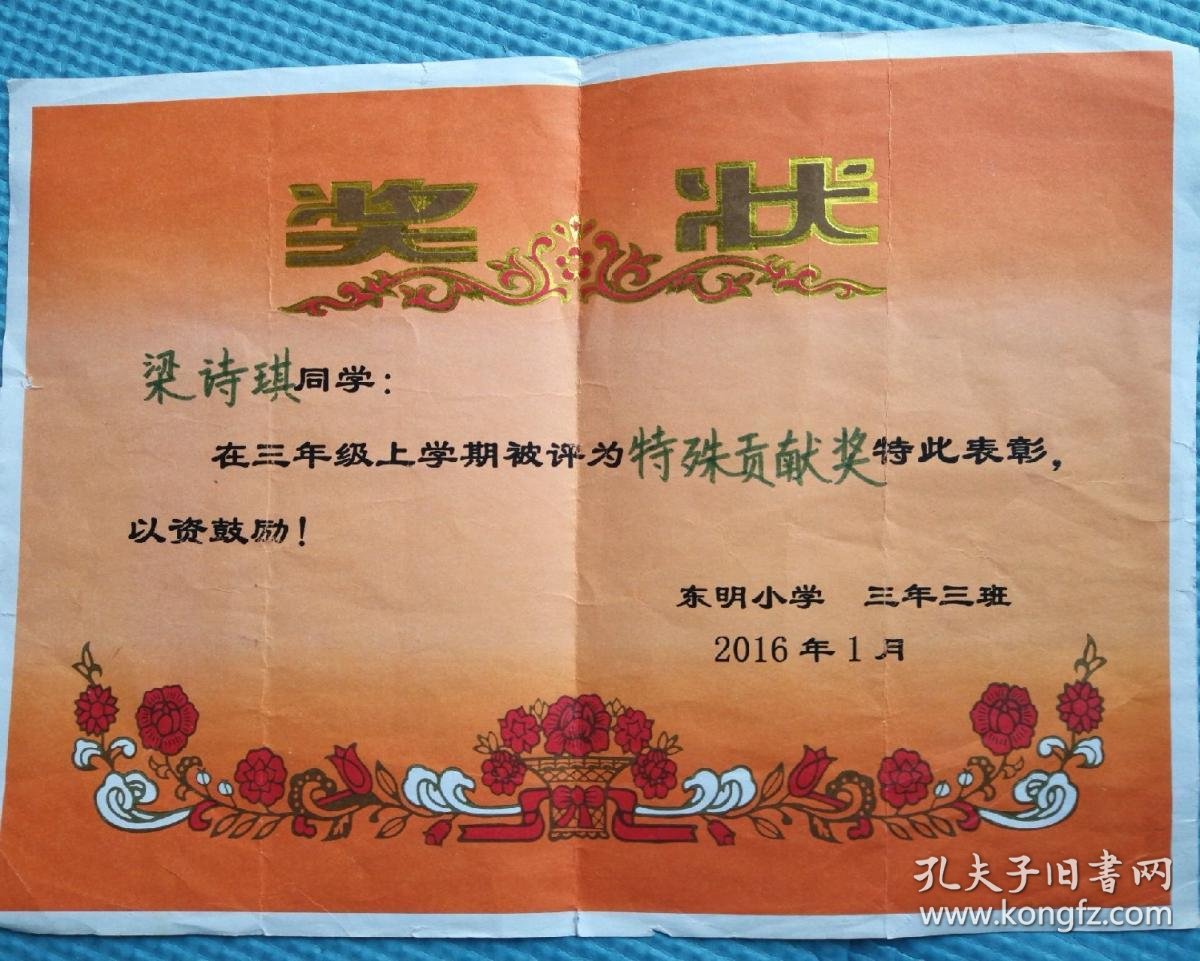 奖 状
梁诗琪同学：
在三年级上学期被评为特殊贡献奖特此表彰，
以资鼓励！
东明小学 三年三班
2016年1月
孔夫子旧書网
www.kongfz.com